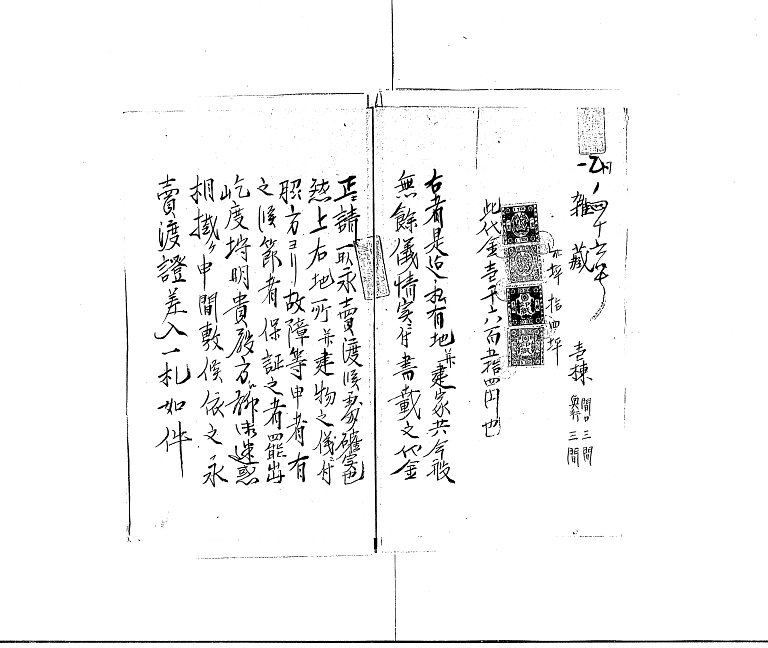 雑蔵 壱棟 間口三間 奥行三間
此坪拾四坪
此代金壱千六百五拾四円也
右者是迄私有地并建家共今般
無餘儀情実ニ付書載之代金
正ニ請取永賣渡候處確実也
然上右地所并建物之儀ニ付
聊方ヨリ故障等申者有
之候節者保証之者罷出
屹度埒明貴殿方ヘ聊御迷惑
相掛ケ申間敷候依之永
賣渡證差入一札如件